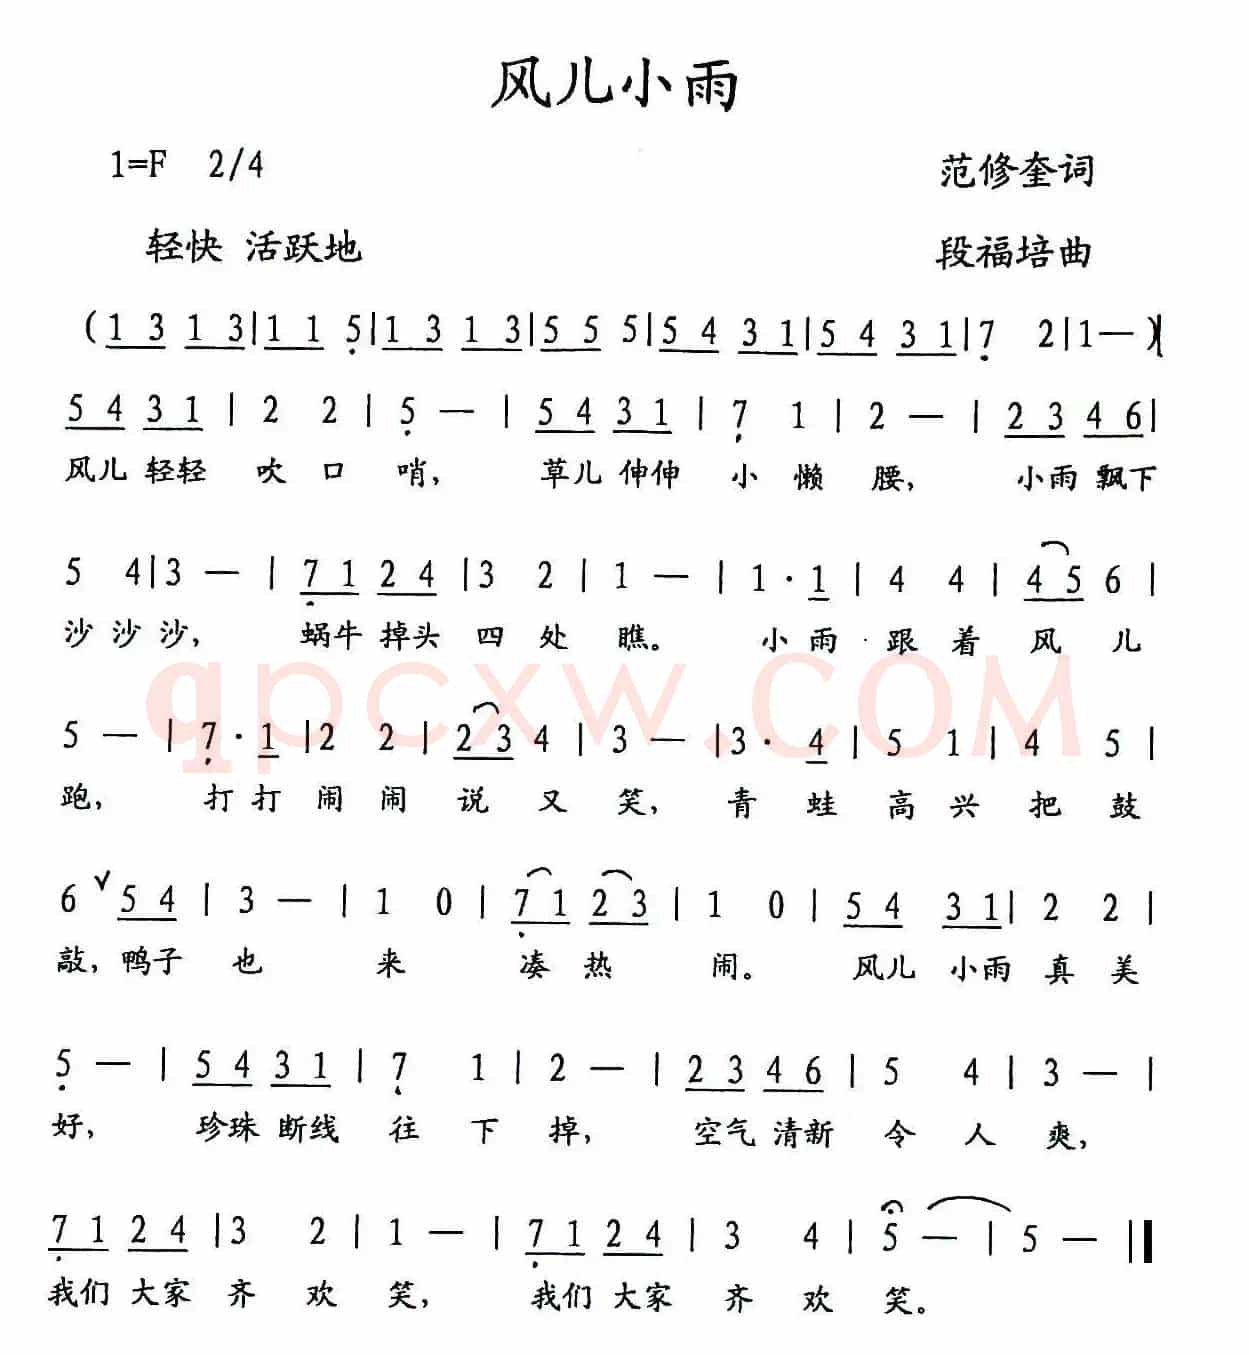 风儿小雨
1=F 2/4
范修奎词
轻快 活跃地
段福培曲
(1 3 1 3|1 1 5|1 3 1 3|5 5 5|5 4 3 1|5 4 3 1|7 2|1—)|
5 4 3 1 | 2 2 | 5 — | 5 4 3 1 | 7 1 | 2 — | 2 3 4 6|
风儿 轻轻 吹 口 哨, 草儿 伸伸 小 懒 腰, 小雨 飘下
5 4|3 — | 7 1 2 4 |3 2 | 1 — | 1·1 | 4 4 | 4 5 6 |
沙 沙 沙, 蜗牛 掉头 四 处 瞧。 小 雨 跟 着 风 儿
qpcxw.COM
5 — | 7·1 |2 2 | 2 3 4 | 3 — |3·4 | 5 1 | 4 5 |
跑, 打 打 闹 闹 说 又 笑, 青 蛙 高 兴 把 鼓
6 ∨ 5 4 | 3 — | 1 0 | 7 1 2 3 | 1 0 | 5 4 3 1| 2 2 |
敲, 鸭子 也 来 凑 热 闹。 风儿 小雨 真 美
5 — | 5 4 3 1 | 7 1 | 2 — | 2 3 4 6 | 5 4 | 3 — |
好, 珍珠 断线 往 下 掉, 空气 清新 令 人 爽,
7 1 2 4 |3 2 | 1 — | 7 1 2 4 | 3 4 | 5 — | 5 — ‖
我们 大家 齐 欢 笑, 我们 大家 齐 欢 笑。